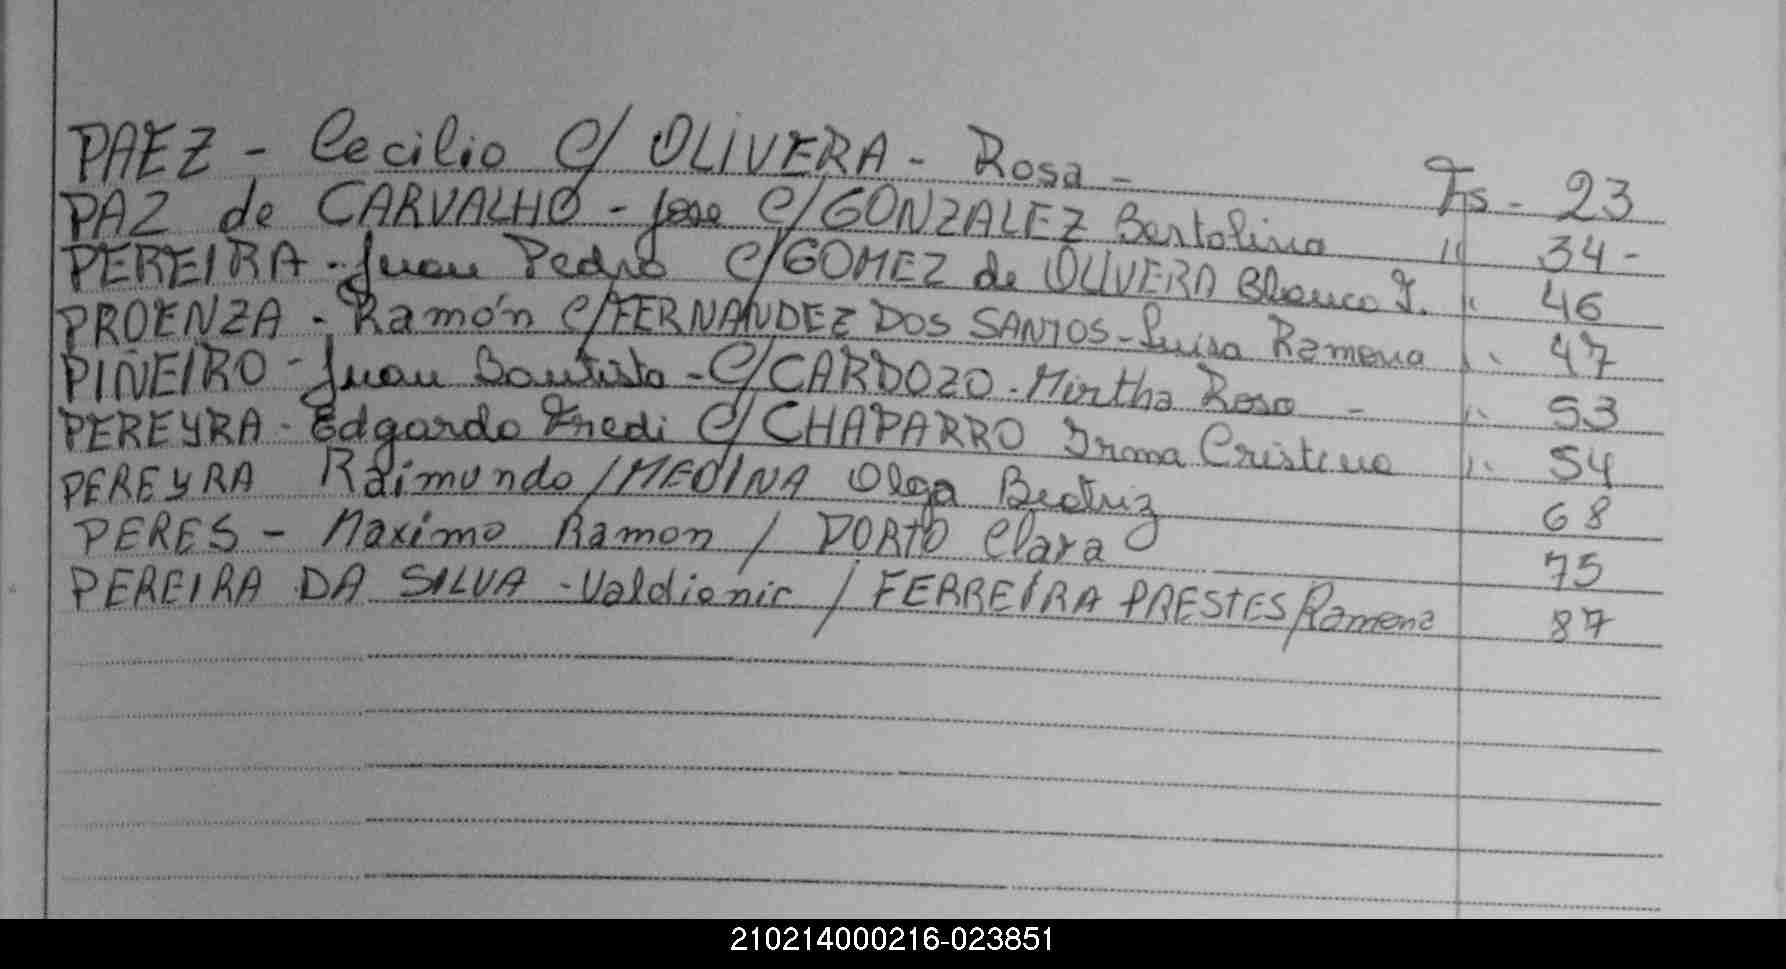 PAEZ - Cecilio C/ OLIVERA - Rosa - Fs - 23
PAZ de CARVALHO - Jose C/ GONZALEZ Bertolina " 34 -
PEREIRA - Juan Pedro C/ GOMEZ de OLIVERA Blanca I. " 46
PROENZA - Ramón C/ FERNANDEZ DOS SANTOS - Luisa Ramona " 47
PIÑEIRO - Juan Bautista - C/ CARDOZO - Mirtha Rosa - " 53
PEREYRA - Edgardo Fredi C/ CHAPARRO Irma Cristina " 54
PEREYRA Raimundo / MEDINA Olga Beatriz 68
PERES - Maximo Ramon / PORTO Clara 75
PEREIRA DA SILVA - Valdionir / FERREIRA PRESTES Ramona 87
210214000216-023851